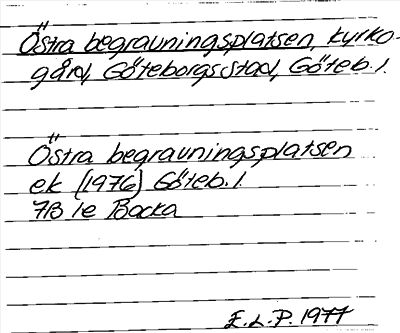 Östra begravningsplatsen, kyrko-
gård, Göteborgs stad, Göteb. l.
Östra begravningsplatsen
ek (1976) Göteb. l.
7B 1e Backa
E.L.P. 1977